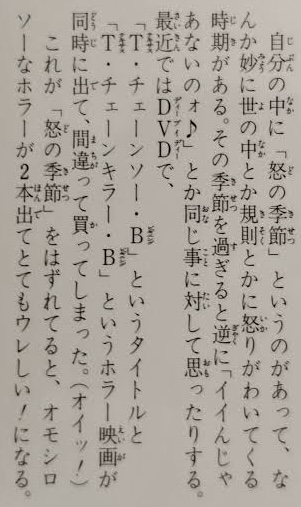 自分の中に「怒の季節」というのがあって、な
んか妙に世の中とか規則とかに怒りがわいてくる
時期がある。その季節を過ぎると逆に「イイんじゃ
あないのォ♪」とか同じ事に対して思ったりする。
最近ではDVDで、
「T・チェーンソー・B」というタイトルと
「T・チェーンキラー・B」というホラー映画が
同時に出て、間違って買ってしまった。(オイッ!)
これが「怒の季節」をはずれてると、オモシロ
ソーなホラーが2本出てとてもウレしい!になる。